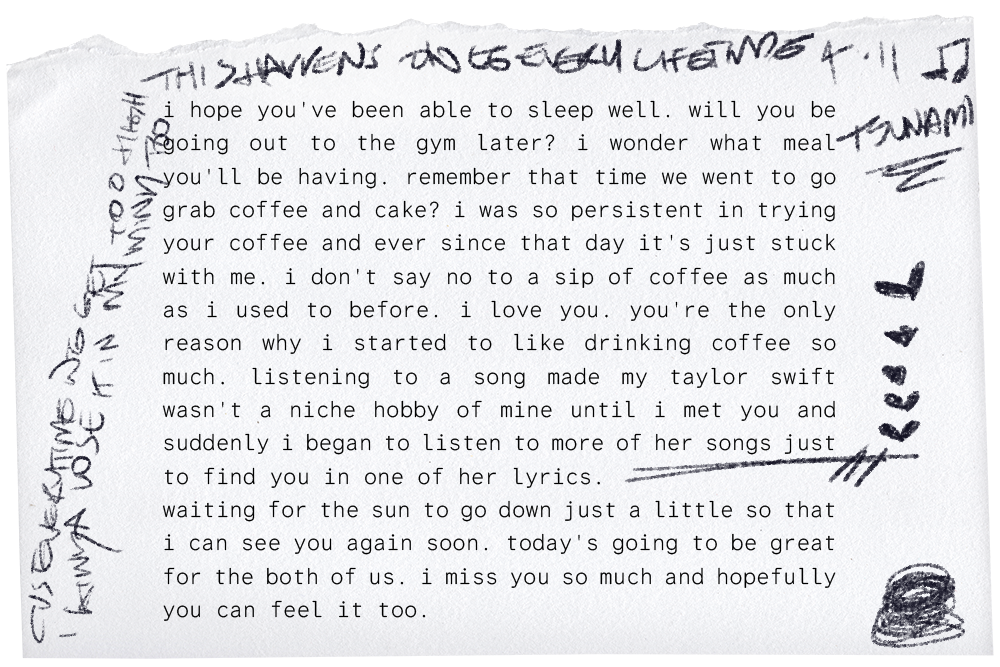 THIS HAPPENS ONCE EVERY LIFETIME
TSUNAMI
i hope you've been able to sleep well. will you be
going out to the gym later? i wonder what meal
you'll be having. remember that time we went to go
grab coffee and cake? i was so persistent in trying
your coffee and ever since that day it's just stuck
with me. i don't say no to a sip of coffee as much
as i used to before. i love you. you're the only
reason why i started to like drinking coffee so
much. listening to a song made my taylor swift
wasn't a niche hobby of mine until i met you and
suddenly i began to listen to more of her songs just
to find you in one of her lyrics.
waiting for the sun to go down just a little so that
i can see you again soon. today's going to be great
for the both of us. i miss you so much and hopefully
you can feel it too.
CUS EVERYTIME WE GET TOO HIGH
I KINDA LOSE IT IN MY MIND TOO